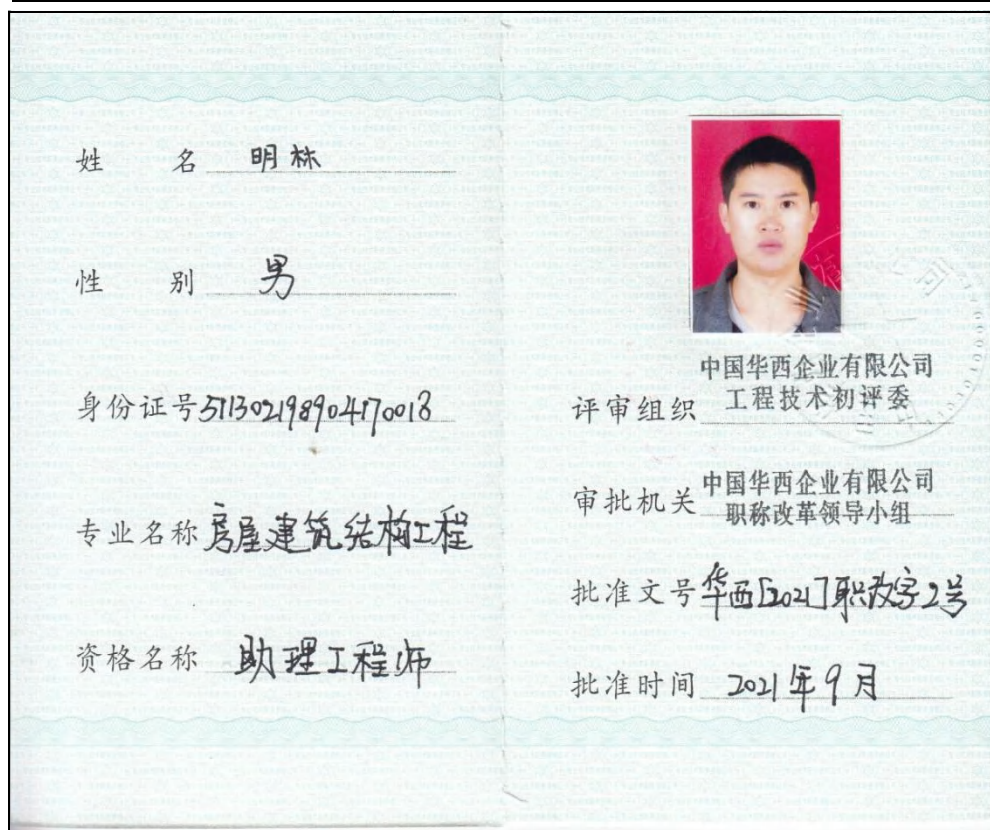 姓 名 明林
性 别 男
身份证号 511302198904170018
专业名称 房屋建筑结构工程
资格名称 助理工程师
中国华西企业有限公司
评审组织 工程技术初评委
中国华西企业有限公司
审批机关 职称改革领导小组
批准文号 华西[2021]职改字2号
批准时间 2021年9月